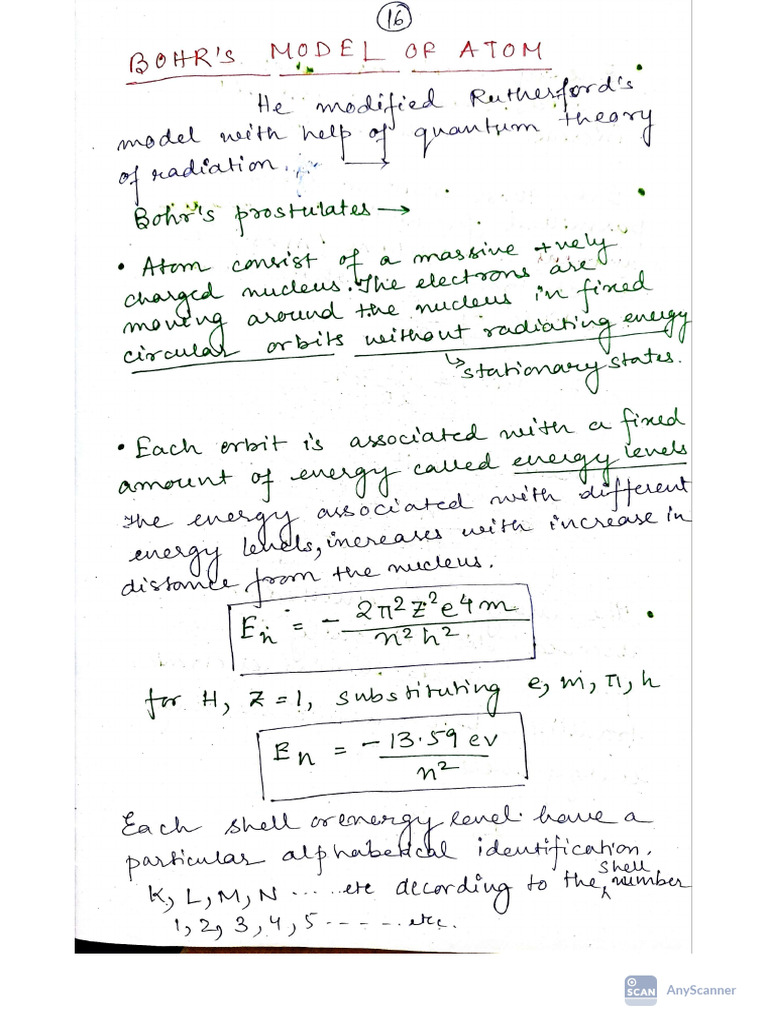 16
BOHR'S MODEL OF ATOM
He modified Rutherford's
model with help of quantum theory
of radiation.
Bohr's prostulates →
• Atom consist of a massive +vely
charged nucleus. The electrons are
moving around the nucleus in fixed
circular orbits without radiating energy
↳ stationary states.
• Each orbit is associated with a fixed
amount of energy called energy levels
The energy associated with different
energy levels, increases with increase in
distance from the nucleus.
En = - 2π²Z²e4m / n²h²
for H, Z = 1, substituting e, m, π, h
En = -13.59 ev / n²
Each shell or energy level have a
particular alphabetical identification.
K, L, M, N ..... etc according to the shell number
1, 2, 3, 4, 5 ...... etc.
SCAN AnyScanner